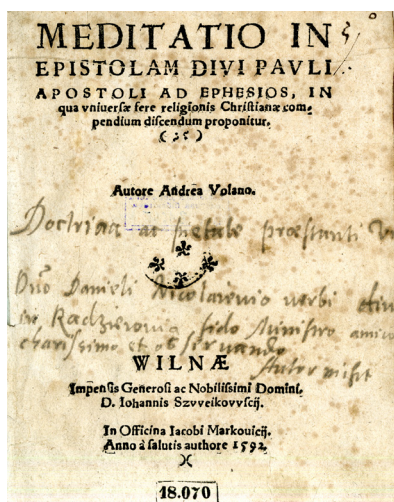 MEDITATIO IN
EPISTOLAM DIVI PAVLI
APOSTOLI AD EPHESIOS, IN
qua vniuersæ fere religionis Christianæ com-
pendium discendum proponitur.
Autore Andrea Volano.
Doctrina ac pietate præstanti
Dno Danieli Nicolaievio verbi
in Radzivonia fido Ministro amico
charissimo et observando
Autor misit
WILNÆ
Impensis Generosi ac Nobilissimi Domini.
D. Iohannis Szvveikovvscij.
In Officina Iacobi Markouicij.
Anno à salutis authore 1592
18.070